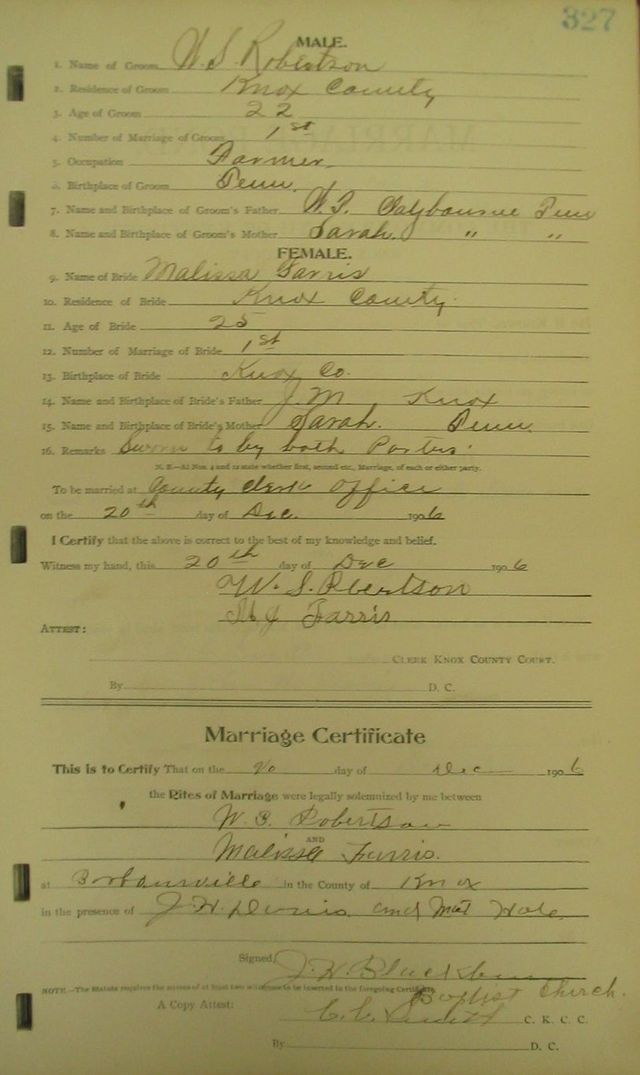 327
MALE.
1. Name of Groom W. S. Robertson
2. Residence of Groom Knox County
3. Age of Groom 22
4. Number of Marriage of Groom 1st
5. Occupation Farmer
6. Birthplace of Groom Tenn.
7. Name and Birthplace of Groom's Father W. T. Tenn
8. Name and Birthplace of Groom's Mother Sarah. " "
FEMALE.
9. Name of Bride Malissa Farris
10. Residence of Bride Knox County.
11. Age of Bride 25
12. Number of Marriage of Bride 1st
13. Birthplace of Bride Knox Co.
14. Name and Birthplace of Bride's Father J. M Knox
15. Name and Birthplace of Bride's Mother Sarah. Tenn.
16. Remarks Sworn to by both
N. B.—At Nos. 4 and 12 state whether first, second etc., Marriage, of each or either party.
To be married at County Clerk office
on the 20th day of Dec. 1906
I Certify that the above is correct to the best of my knowledge and belief.
Witness my hand, this 20th day of Dec 1906
W. S. Rbertson
M J Farris
ATTEST:
CLERK KNOX COUNTY COURT.
By D. C.
Marriage Certificate
This is to Certify That on the 20 day of Dec 1906
the Rites of Marriage were legally solemnized by me between
W. S. Robertson
AND
Malissa Farris.
at Borbourville in the County of Knox
in the presence of J. H. Davis and Mat Hale
Signed, J. H. Blackburn
NOTE.—The Statute requires the names of at least two witnesses to be inserted in the foregoing Certificate.
Baptist Church.
A Copy Attest: C. C. C. K. C. C.
By D. C.